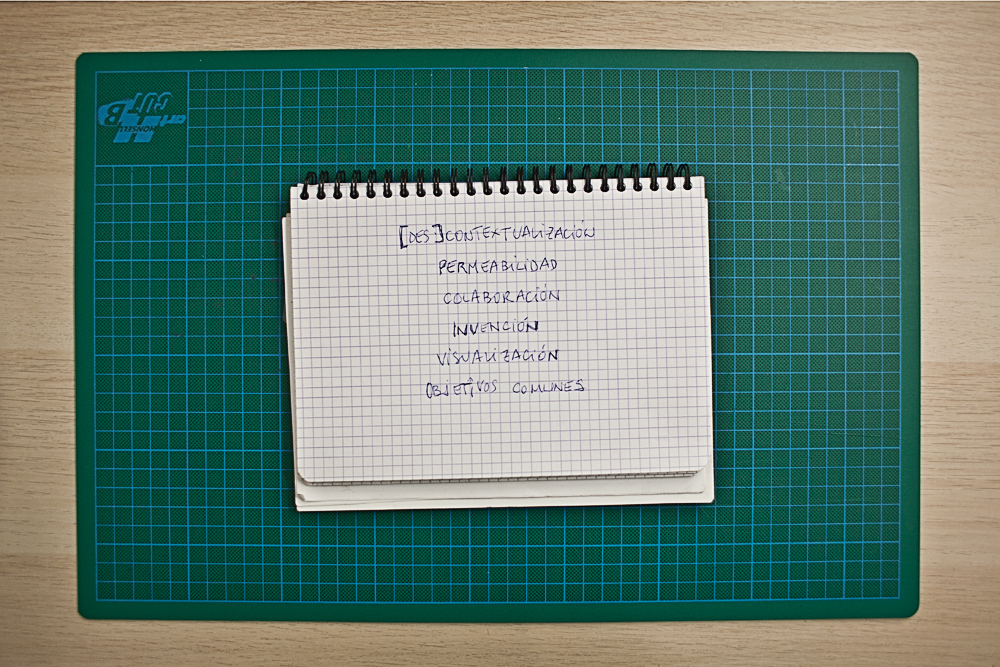 [DES-]CONTEXTUALIZACIÓN
PERMEABILIDAD
COLABORACIÓN
INVENCIÓN
VISUALIZACIÓN
OBJETIVOS COMUNES